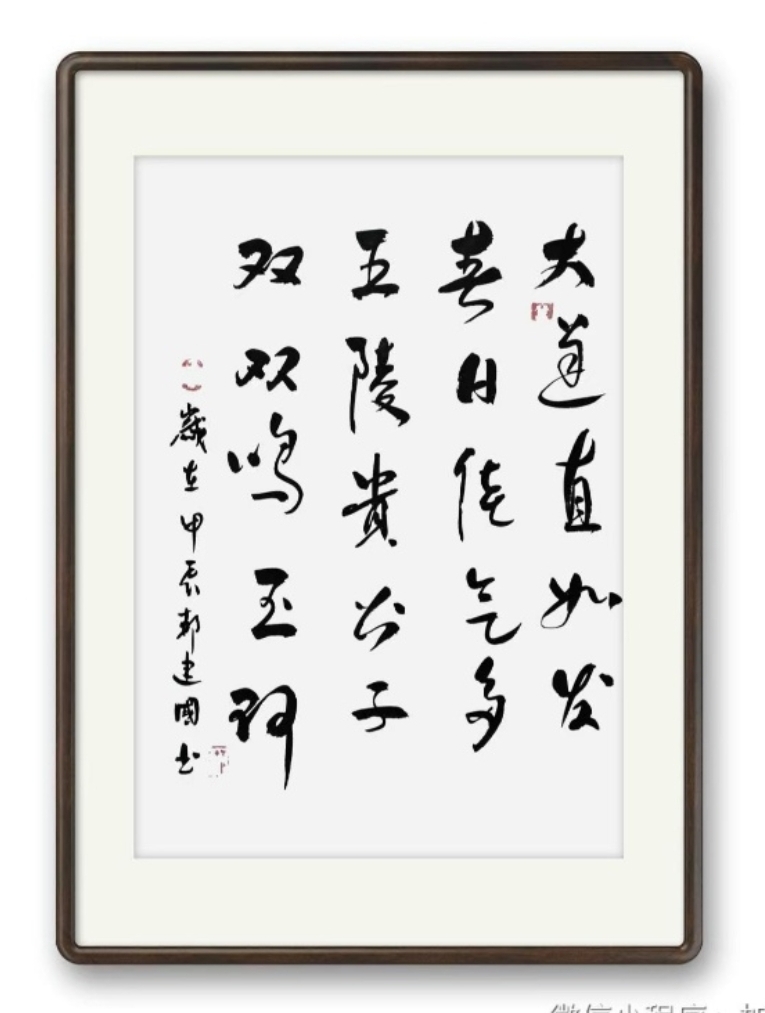 大道直如发
春日佳气多
五陵贵公子
双双鸣玉珂
歲在甲辰郭建國书
微信小程序: